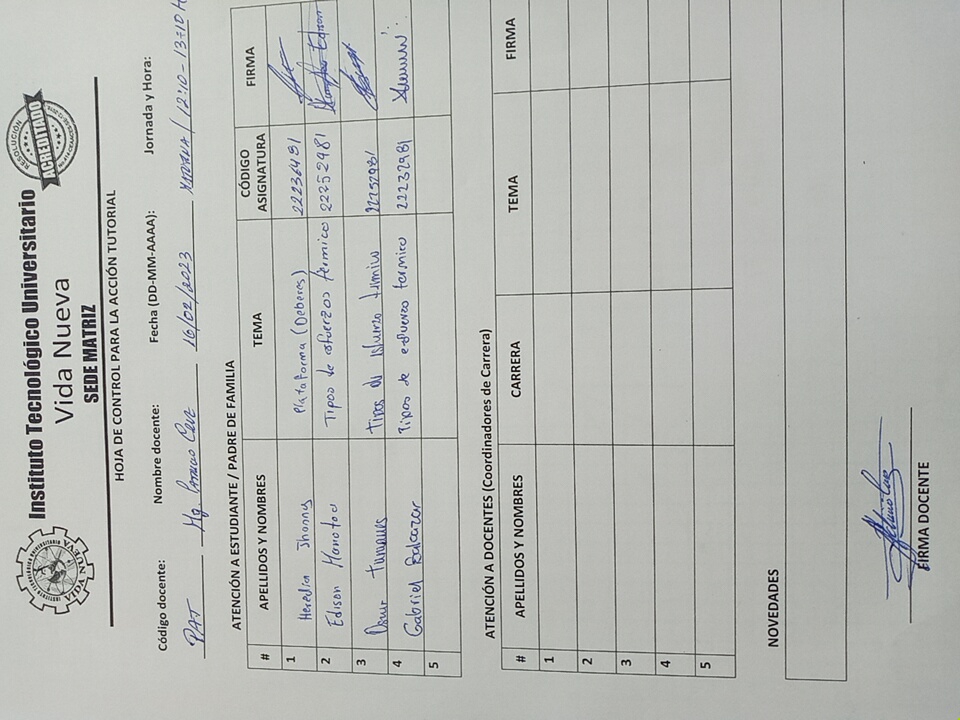 Instituto Tecnológico Universitario
Vida Nueva
SEDE MATRIZ
INSTITUTO TECNOLÓGICO UNIVERSITARIO
VIDA NUEVA
RESOLUCIÓN
ACREDITADO
HOJA DE CONTROL PARA LA ACCIÓN TUTORIAL
Código docente: Nombre docente: Fecha (DD-MM-AAAA): Jornada y Hora:
PAT Mg. Patricio Cruz 16/02/2023 / 12:10 - 13:10 H
ATENCIÓN A ESTUDIANTE / PADRE DE FAMILIA
# APELLIDOS Y NOMBRES TEMA CÓDIGO ASIGNATURA FIRMA
1 Heredia Jhonny Plataforma (Deberes) 22236481
2 Edison Tipos de esfuerzos térmico 22252981 Edison
3 tipos de esfuerzo termico 22252981
4 Gabriel Balcazar Tipos de esfuerzo termico 22232981
5
ATENCIÓN A DOCENTES (Coordinadores de Carrera)
# APELLIDOS Y NOMBRES CARRERA TEMA FIRMA
1
2
3
4
5
NOVEDADES
FIRMA DOCENTE